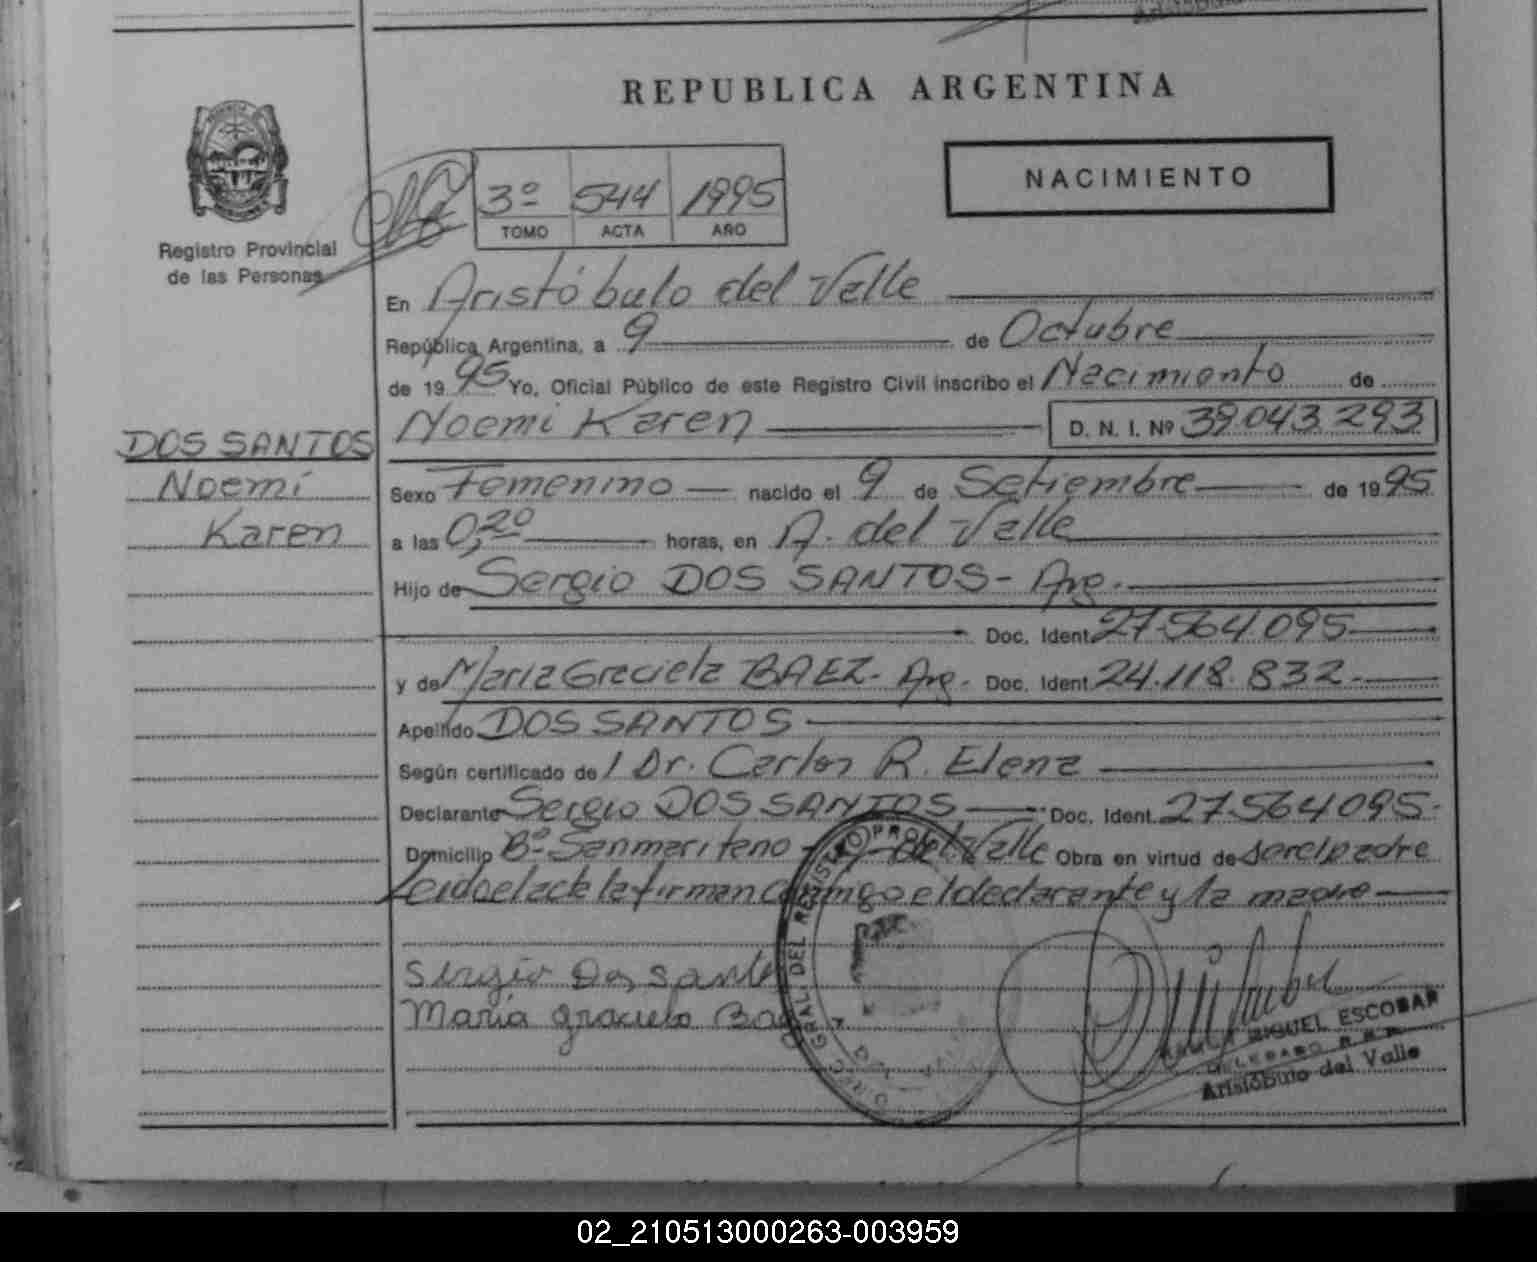 REPUBLICA ARGENTINA
NACIMIENTO
3º 544 1995
TOMO ACTA AÑO
Registro Provincial
de las Personas
En Aristóbulo del Valle
República Argentina, a 9 de Octubre
de 1995 Yo, Oficial Público de este Registro Civil inscribo el Nacimiento de
Noemi Karen D. N. I. Nº 39.043.293
DOS SANTOS
Noemí
Karen
Sexo Femenino nacido el 9 de Setiembre de 1995
a las 0,20 horas, en A. del Valle
Hijo de Sergio DOS SANTOS - Arg.
Doc. Ident. 27.564.095
y de María Graciela BAEZ - Arg. Doc. Ident. 24.118.832.
Apellido DOS SANTOS
Según certificado de / Dr. Carlos R. Elena
Declarante Sergio DOS SANTOS Doc. Ident. 27.564.095.
Domicilio Bº Sanmariteno - A. del Valle Obra en virtud de ser el padre
Leido el acta la firman conmigo el declarante y la madre
Sergio Dos Sant
María Graciela Ba
DIREC. GRAL. DEL REGISTRO PROV
MIGUEL ESCOBAR
DELEGADO R.P.P.
Aristóbulo del Valle
02_210513000263-003959